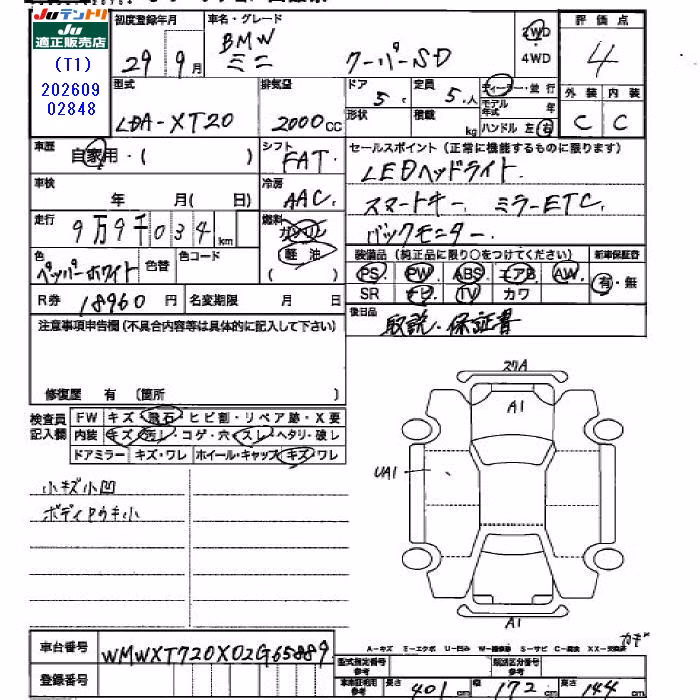 Ju テントリ
Ju 適正販売店
(T1)
202609
02848
初度登録年月
29年 9月
車名・グレード
BMW
ミニ クーパーSD
2WD
4WD
評価点
4
外装 内装
C C
型式
LDA-XT20
排気量
2000 CC
ドア
5
定員
5人
形状
積載
kg
ディーラー・並行
モデル年式 年
ハンドル 左 右
車歴
自家用・( )
シフト
FAT
セールスポイント(正常に機能するものに限ります)
LEDヘッドライト.
スマートキー. ミラーETC.
バックモニター.
車検
年 月( 日)
冷房
AAC
走行
9万9千034 km
燃料
ガソリン
軽油
( )
色
ペッパーホワイト
色替
色コード
装備品(純正品に限り○をつけてください)
新車保証書
PS PW ABS エアB AW
SR ナビ TV カワ
有・無
R券 18960 円
名変期限 月 日
後日品
取説・保証書
注意事項申告欄(不具合内容等は具体的に記入して下さい)
修復歴 有 (箇所 )
検査員記入欄
FW キズ・飛石・ヒビ割・リペア跡・X要
内装 キズ・汚レ・コゲ・穴・スレ・ヘタリ・破レ
ドアミラー キズ・ワレ ホイール・キャップ キズ・ワレ
小キズ小凹
27A
A1
UA1
A1
A-キズ E-エクボ U-凹み S-サビ
車台番号
WMWXT720X02G65889
登録番号
型式指定番号
類別区分番号
長さ 401 cm
幅 172 cm
高さ 144 cm